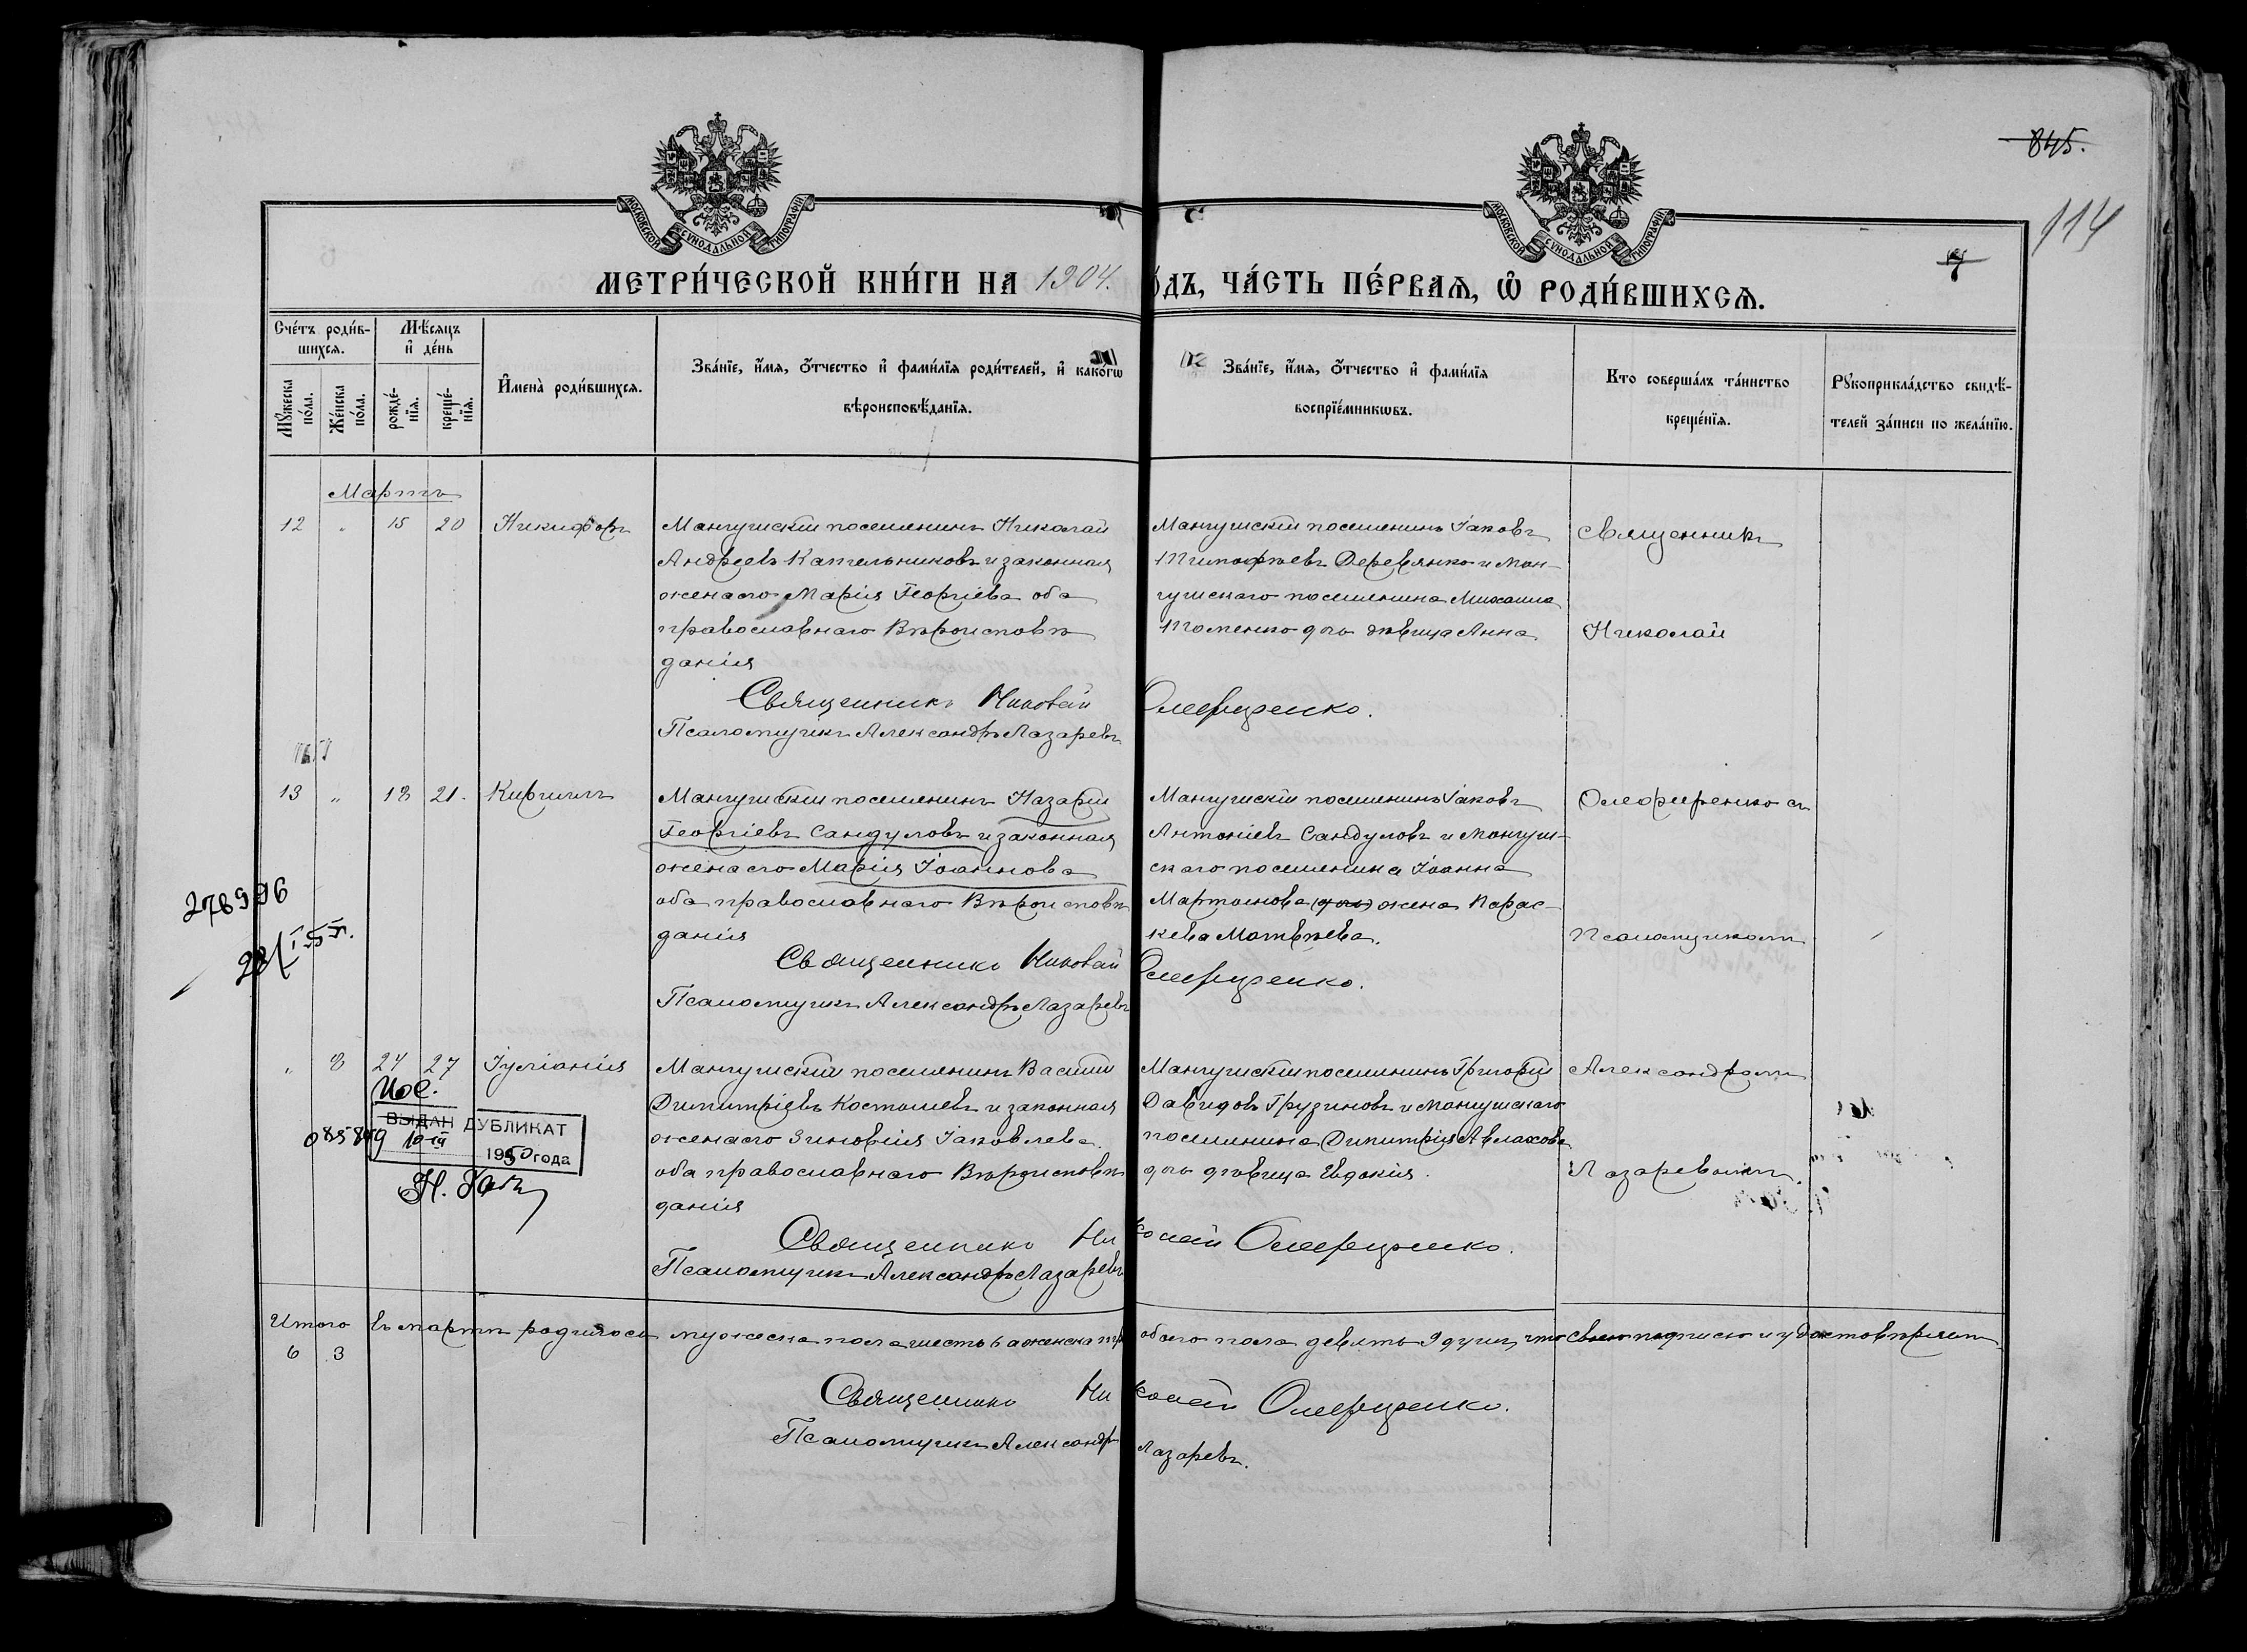 845.
114
7
МОСКОВСКОЙ СѴНОДАЛЬНОЙ ТИПОГРАФІИ
МОСКОВСКОЙ СѴНОДАЛЬНОЙ ТИПОГРАФІИ
МЕТРИ́ЧЕСКОЙ КНИ́ГИ НА 1904.
ОДЪ, ЧА́СТЬ ПЕ́РВАѦ, Ѡ РОДИ́ВШИХСѦ.
Счетъ родив-
шихся.
Мѣсяцъ
и день
Мужеска
пола.
Женска
пола.
рожде-
нія.
креще-
нія.
Имена родившихся.
Званіе, имя, отчество и фамилія родителей, и какогѡ
вѣроисповѣданія.
Званіе, имя, отчество и фамилія
воспріемникѡвъ.
Кто совершалъ таинство
крещенія.
Рукоприкладство свидѣ-
телей записи по желанію.
Мартъ
12 " 15 20 Никифоръ
Мангушскій поселянинъ Николай
Андреевъ Капельниковъ и законная
жена его Марія Георгіева оба
православнаго Вѣроисповѣ
данія
Мангушскій поселянинъ Іаковъ
Тимофѣевъ Деревянко и Ман-
гушскаго поселянина Михаила
Томенко дочь дѣвица Анна
Священникъ
Николай
Священникъ Николай Олеференко.
Псаломщикъ Александръ Лазаревъ
13 " 18 21. Кириллъ
Мангушскій поселянинъ Назарій
Георгіевъ Сандуловъ и законная
жена его Марія Іоаннова
оба православнаго Вѣроисповѣ
данія
Мангушскій поселянинъ Іаковъ
Антоніевъ Сандуловъ и Мангуш-
скаго поселянина Іоанна
Мартынова (дочь) жена Парас-
кева Матвѣева.
Олеференко съ
Псаломщикомъ
278996
Священникъ Николай Олеференко.
Псаломщикъ Александръ Лазаревъ
" 8 24 27 Іуліанія
Мангушскій поселянинъ Василій
Димитріевъ Костылевъ и законная
жена его Зиновія Іаковлева
оба православнаго Вѣроисповѣ
данія
Мангушскій поселянинъ Григорій
Давидовъ Грузиновъ и Мангушскаго
поселянина Димитрія Авлахова
дочь дѣвица Евдокія.
Александромъ
Лазаревымъ.
ВЫДАН ДУБЛИКАТ
085849 10-III
1950 года
Священникъ Николай Олеференко.
Псаломщикъ Александръ Лазаревъ
Итого въ мартѣ родилось мужеска пола шесть 6 а женска три обоего пола девять 9 душъ, что своею подписью и удостовѣряемъ
6 3
Священникъ Николай Олеференко.
Псаломщикъ Александръ Лазаревъ.